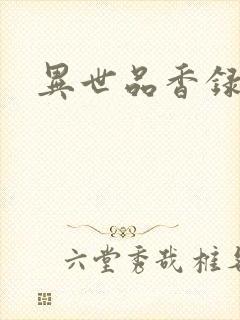 異世品香録
六堂秀哉